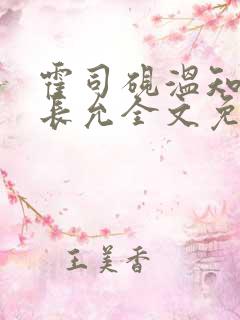 霍司砚温知
长允全文免
王美香